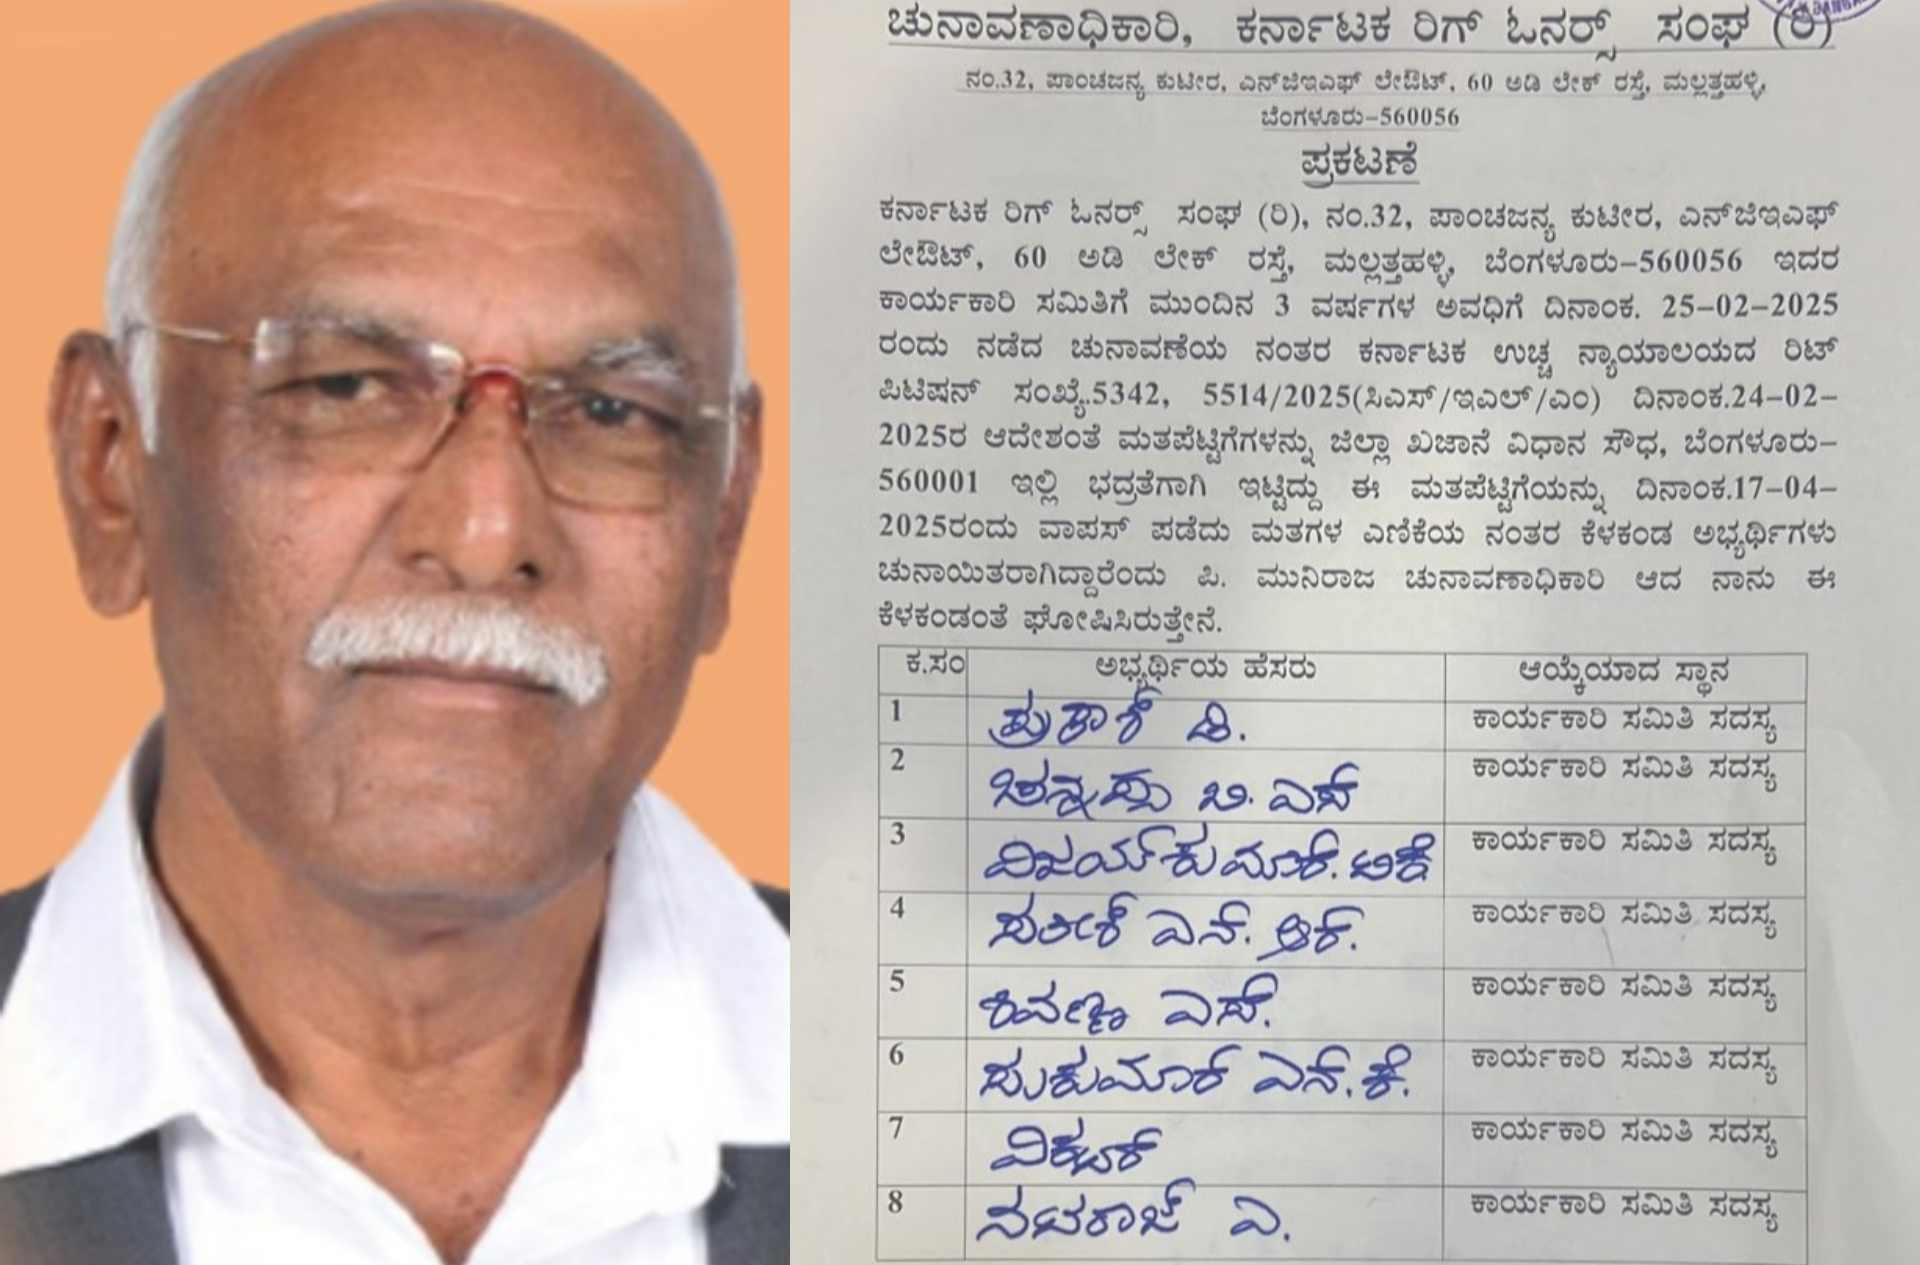 ಚುನಾವಣಾಧಿಕಾರಿ, ಕರ್ನಾಟಕ ರಿಗ್ ಓನರ್ಸ್ ಸಂಘ (ರಿ)
ನಂ.32, ಪಾಂಚಜನ್ಯ ಕುಟೀರ, ಎನ್‌ಜಿಇಎಫ್ ಲೇಔಟ್, 60 ಅಡಿ ಲೇಕ್ ರಸ್ತೆ, ಮಲ್ಲತ್ತಹಳ್ಳಿ,
ಬೆಂಗಳೂರು-560056
ಪ್ರಕಟಣೆ
ಕರ್ನಾಟಕ ರಿಗ್ ಓನರ್ಸ್ ಸಂಘ (ರಿ), ನಂ.32, ಪಾಂಚಜನ್ಯ ಕುಟೀರ, ಎನ್‌ಜಿಇಎಫ್
ಲೇಔಟ್, 60 ಅಡಿ ಲೇಕ್ ರಸ್ತೆ, ಮಲ್ಲತ್ತಹಳ್ಳಿ, ಬೆಂಗಳೂರು-560056 ಇದರ
ಕಾರ್ಯಕಾರಿ ಸಮಿತಿಗೆ ಮುಂದಿನ 3 ವರ್ಷಗಳ ಅವಧಿಗೆ ದಿನಾಂಕ. 25-02-2025
ರಂದು ನಡೆದ ಚುನಾವಣೆಯ ನಂತರ ಕರ್ನಾಟಕ ಉಚ್ಚ ನ್ಯಾಯಾಲಯದ ರಿಟ್
ಪಿಟಿಷನ್ ಸಂಖ್ಯೆ.5342, 5514/2025(ಸಿಎಸ್/ಇಎಲ್/ಎಂ) ದಿನಾಂಕ.24-02-
2025ರ ಆದೇಶಂತೆ ಮತಪೆಟ್ಟಿಗೆಗಳನ್ನು ಜಿಲ್ಲಾ ಖಜಾನೆ ವಿಧಾನ ಸೌಧ, ಬೆಂಗಳೂರು-
560001 ಇಲ್ಲಿ ಭದ್ರತೆಗಾಗಿ ಇಟ್ಟಿದ್ದು ಈ ಮತಪೆಟ್ಟಿಗೆಯನ್ನು ದಿನಾಂಕ.17-04-
2025ರಂದು ವಾಪಸ್ ಪಡೆದು ಮತಗಳ ಎಣಿಕೆಯ ನಂತರ ಕೆಳಕಂಡ ಅಭ್ಯರ್ಥಿಗಳು
ಚುನಾಯಿತರಾಗಿದ್ದಾರೆಂದು ಪಿ. ಮುನಿರಾಜ ಚುನಾವಣಾಧಿಕಾರಿ ಆದ ನಾನು ಈ
ಕೆಳಕಂಡಂತೆ ಘೋಷಿಸಿರುತ್ತೇನೆ.
ಕ.ಸಂ ಅಭ್ಯರ್ಥಿಯ ಹೆಸರು ಆಯ್ಕೆಯಾದ ಸ್ಥಾನ
1 ಪ್ರಕಾಶ್ ಡಿ. ಕಾರ್ಯಕಾರಿ ಸಮಿತಿ ಸದಸ್ಯ
2 ಬಿ. ಎಸ್ ಕಾರ್ಯಕಾರಿ ಸಮಿತಿ ಸದಸ್ಯ
3 ವಿಜಯ್ ಕುಮಾರ್. ಕಾರ್ಯಕಾರಿ ಸಮಿತಿ ಸದಸ್ಯ
4 ಎನ್. ಆರ್. ಕಾರ್ಯಕಾರಿ ಸಮಿತಿ ಸದಸ್ಯ
5 ಶಿವಣ್ಣ ಎಸ್. ಕಾರ್ಯಕಾರಿ ಸಮಿತಿ ಸದಸ್ಯ
6 ಸುಕುಮಾರ್ ಎನ್. ಕೆ. ಕಾರ್ಯಕಾರಿ ಸಮಿತಿ ಸದಸ್ಯ
7 ಕಾರ್ಯಕಾರಿ ಸಮಿತಿ ಸದಸ್ಯ
8 ನಟರಾಜ್ ಎ. ಕಾರ್ಯಕಾರಿ ಸಮಿತಿ ಸದಸ್ಯ